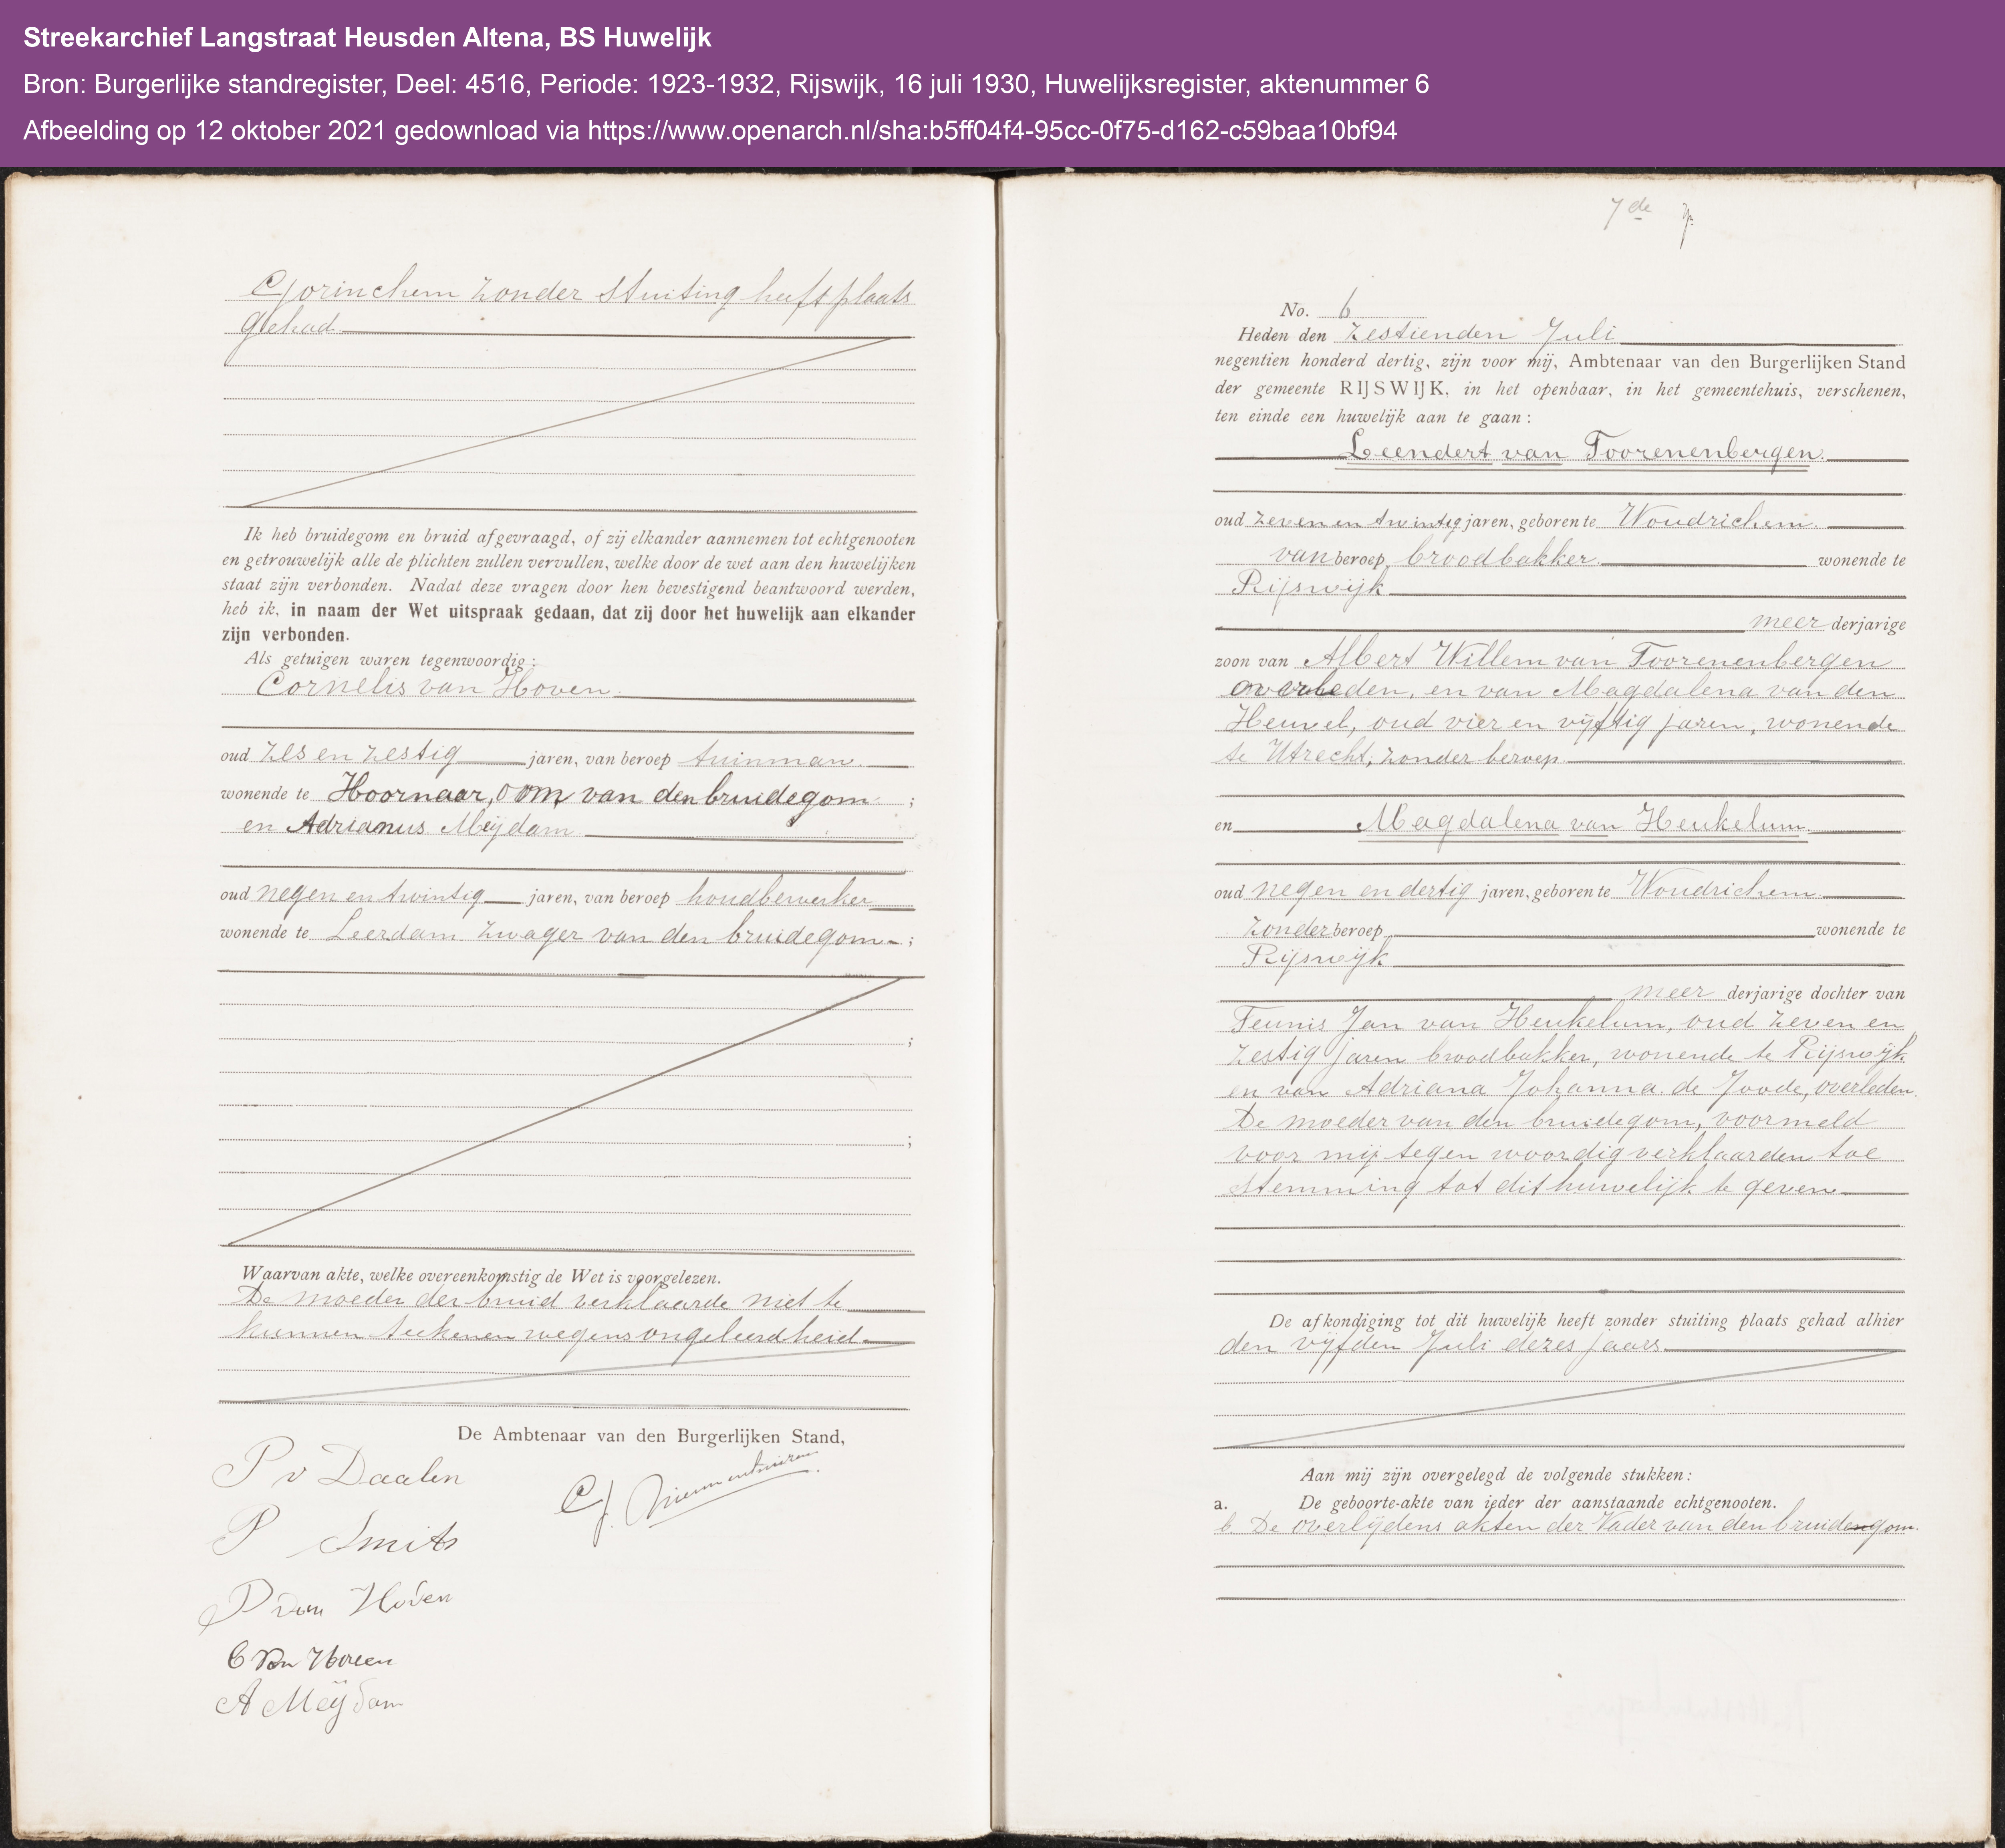 Streekarchief Langstraat Heusden Altena, BS Huwelijk
Bron: Burgerlijke standregister, Deel: 4516, Periode: 1923-1932, Rijswijk, 16 juli 1930, Huwelijksregister, aktenummer 6
Afbeelding op 12 oktober 2021 gedownload via https://www.openarch.nl/sha:b5ff04f4-95cc-0f75-d162-c59baa10bf94
Gorinchem zonder stuiting heeft plaats
gehad.
Ik heb bruidegom en bruid afgevraagd, of zij elkander aannemen tot echtgenooten
en getrouwelijk alle de plichten zullen vervullen, welke door de wet aan den huwelijken
staat zijn verbonden. Nadat deze vragen door hen bevestigend beantwoord werden,
heb ik, in naam der Wet uitspraak gedaan, dat zij door het huwelijk aan elkander
zijn verbonden.
Als getuigen waren tegenwoordig:
Cornelis van Hoven
oud zes en zestig jaren, van beroep tuinman
wonende te Hoornaar, oom van den bruidegom ;
en Adrianus Meijdam
oud negen en twintig jaren, van beroep houdbewerker
wonende te Leerdam zwager van den bruidegom ;
;
;
Waarvan akte, welke overeenkomstig de Wet is voorgelezen.
De moeder der bruid verklaarde niet te
kunnen teekenen wegens ongeleerdheid.
De Ambtenaar van den Burgerlijken Stand,
P v Daalen
P Smits
P van Hoven
C van Hoven
A Meijdam
7de
No. 6
Heden den zestienden Juli
negentien honderd dertig, zijn voor mij, Ambtenaar van den Burgerlijken Stand
der gemeente RIJSWIJK, in het openbaar, in het gemeentehuis, verschenen,
ten einde een huwelijk aan te gaan:
Leendert van Toorenenbergen.
oud zeven en twintig jaren, geboren te Woudrichem.
van beroep broodbakker. wonende te
Rijswijk
meer derjarige
zoon van Albert Willem van Toorenenbergen
overleden, en van Magdalena van den
Heuvel, oud vier en vijftig jaren, wonende
te Utrecht, zonder beroep.
en Magdalena van Heukelum.
oud negen en dertig jaren, geboren te Woudrichem
zonder beroep, wonende te
Rijswijk
meer derjarige dochter van
Teunis Jan van Heukelum, oud zeven en
zestig jaren broodbakker, wonende te Rijswijk
en van Adriana Johanna de Joode, overleden.
De moeder van den bruidegom, voormeld
voor mij tegen woordig verklaarden toe
stemming tot dit huwelijk te geven
De afkondiging tot dit huwelijk heeft zonder stuiting plaats gehad alhier
den vijfden Juli dezes jaars.
Aan mij zijn overgelegd de volgende stukken:
a. De geboorte-akte van ieder der aanstaande echtgenooten.
b. De overlijdens akten der Vader van den bruidegom.